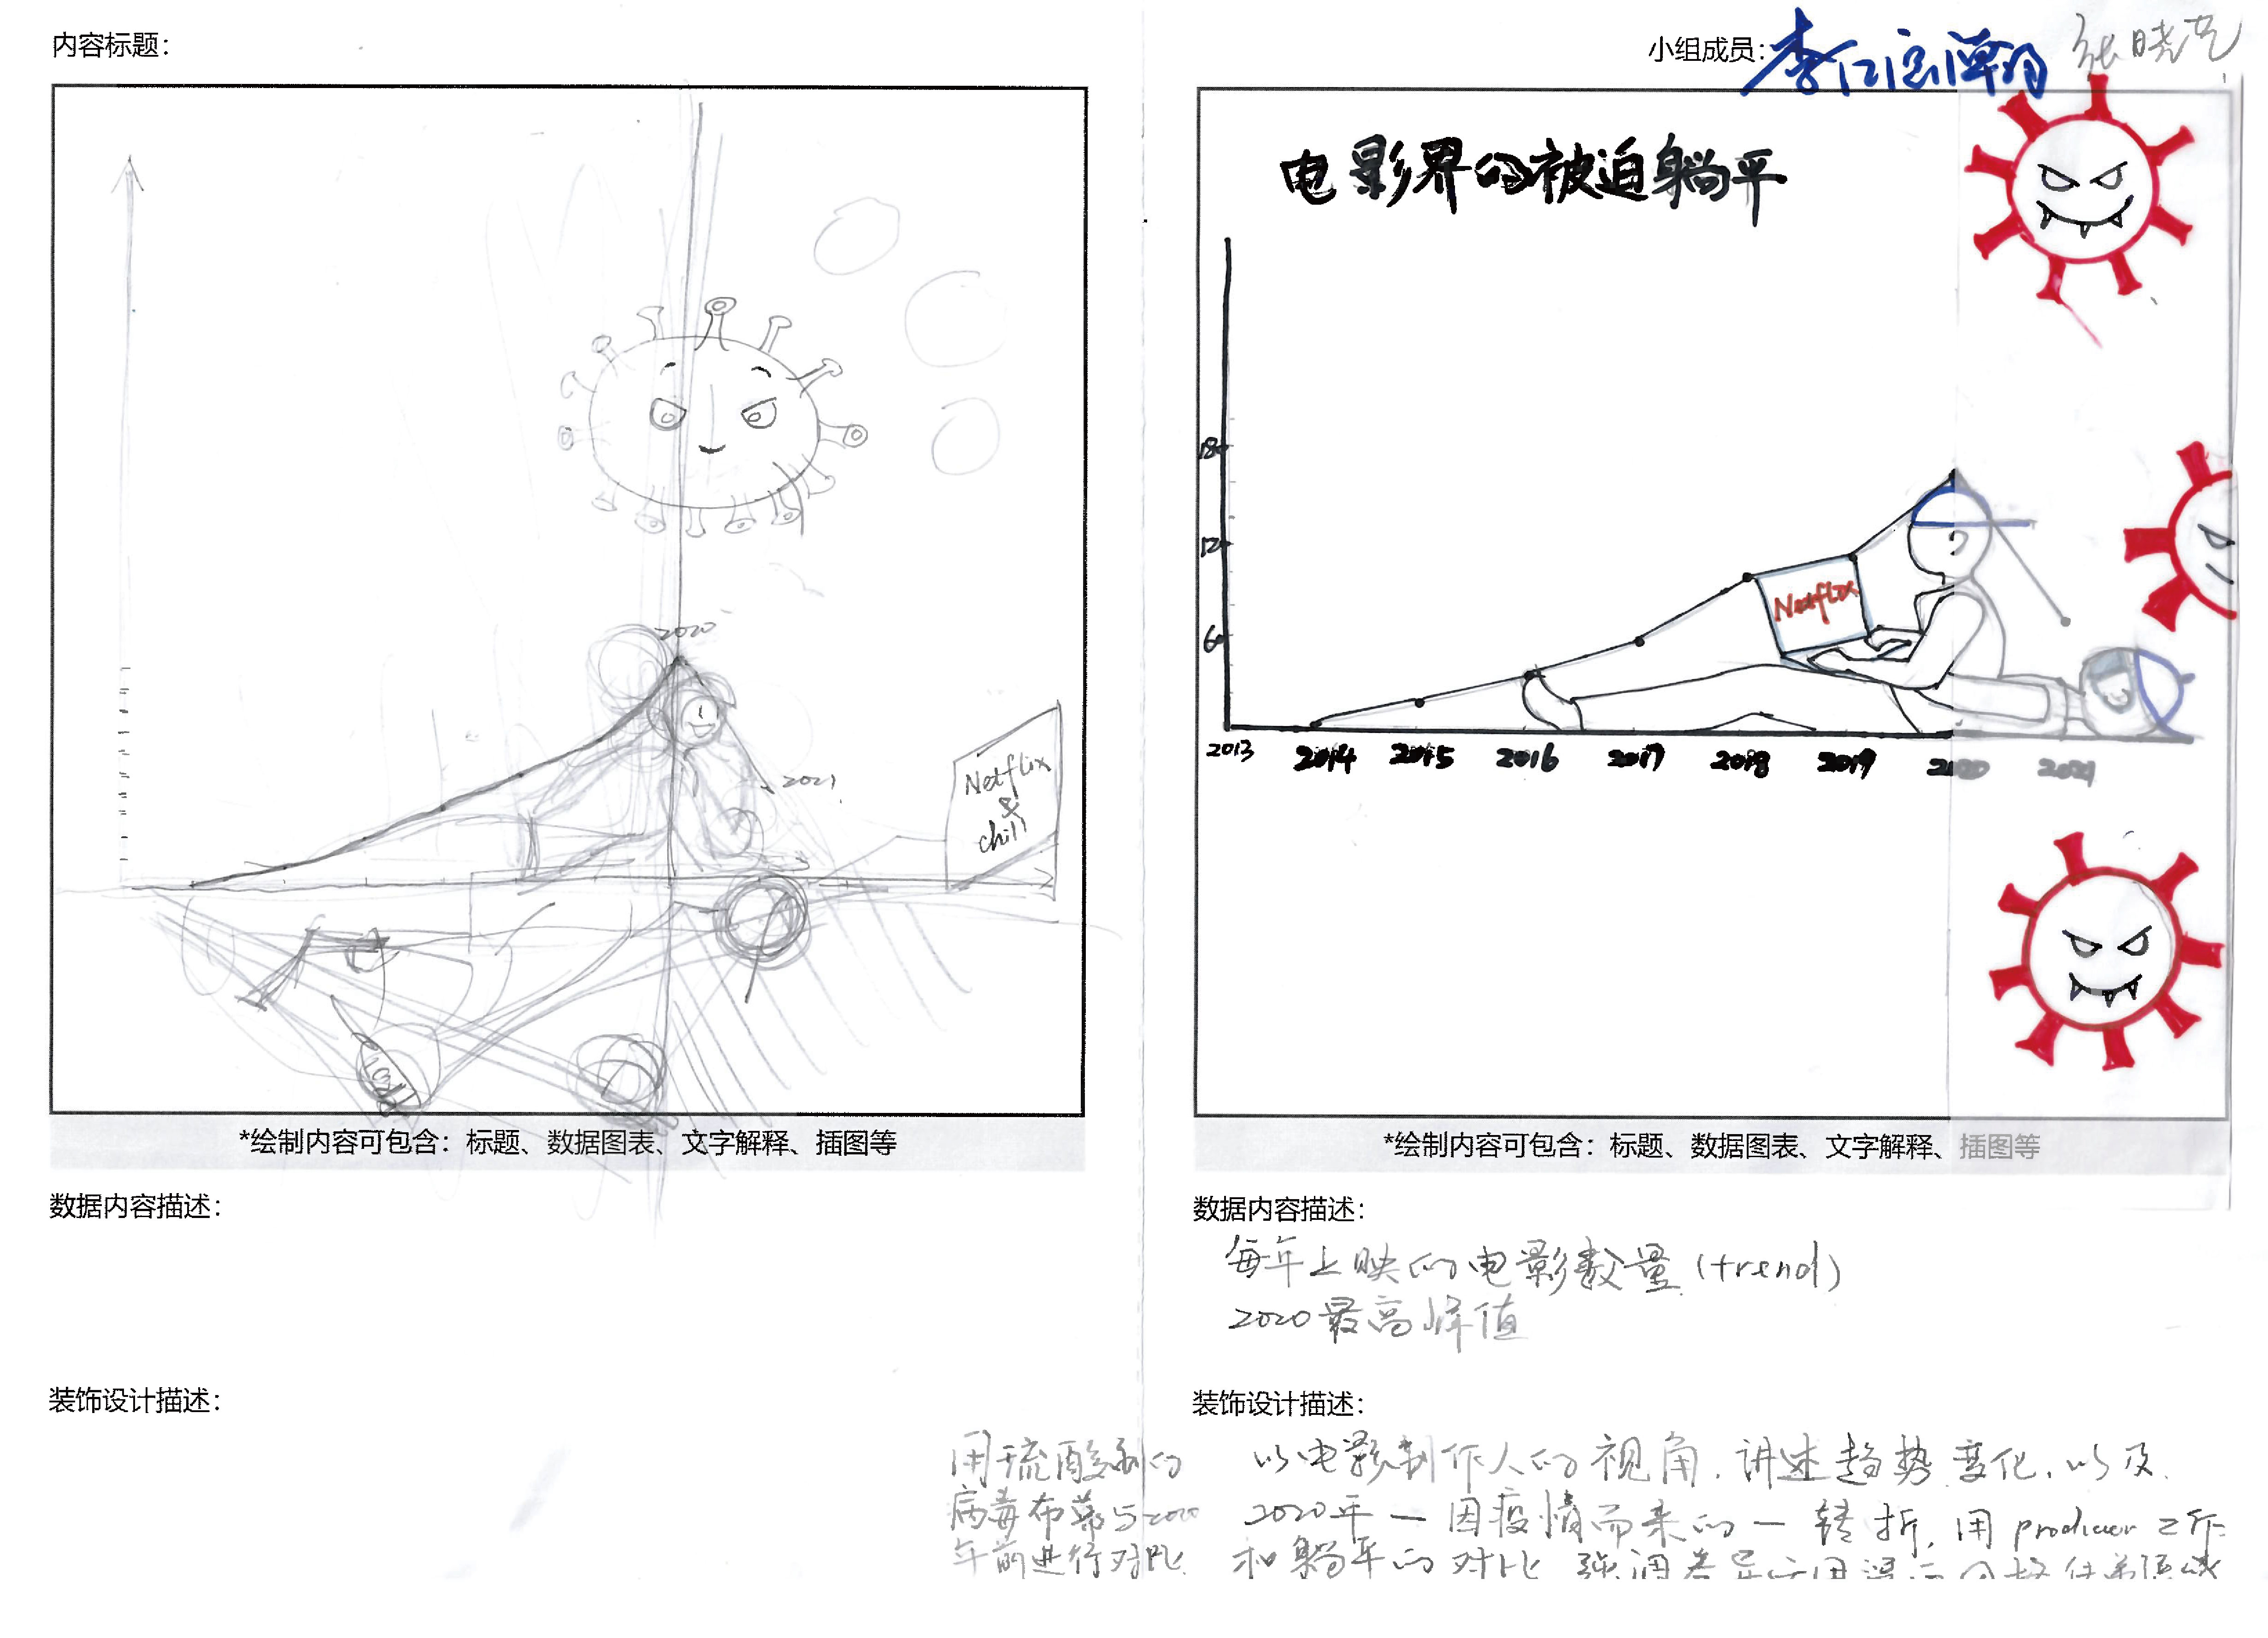 内容标题：
2020
2021
Netflix
&
chill
*绘制内容可包含：标题、数据图表、文字解释、插图等
数据内容描述：
装饰设计描述：
小组成员：李
张晓艺
电影界的被迫躺平
180
120
60
Netflix
2013 2014 2015 2016 2017 2018 2019 2020 2021
*绘制内容可包含：标题、数据图表、文字解释、插图等
数据内容描述：
每年上映的电影数量(trend)
2020最高峰值
装饰设计描述：
用硫酸纸的
病毒布幕与2020
年前进行对比
以电影制作人的视角，讲述趋势变化，以及
2020年一因疫情而来的一转折，用producer工作
和躺平的对比 强调差异